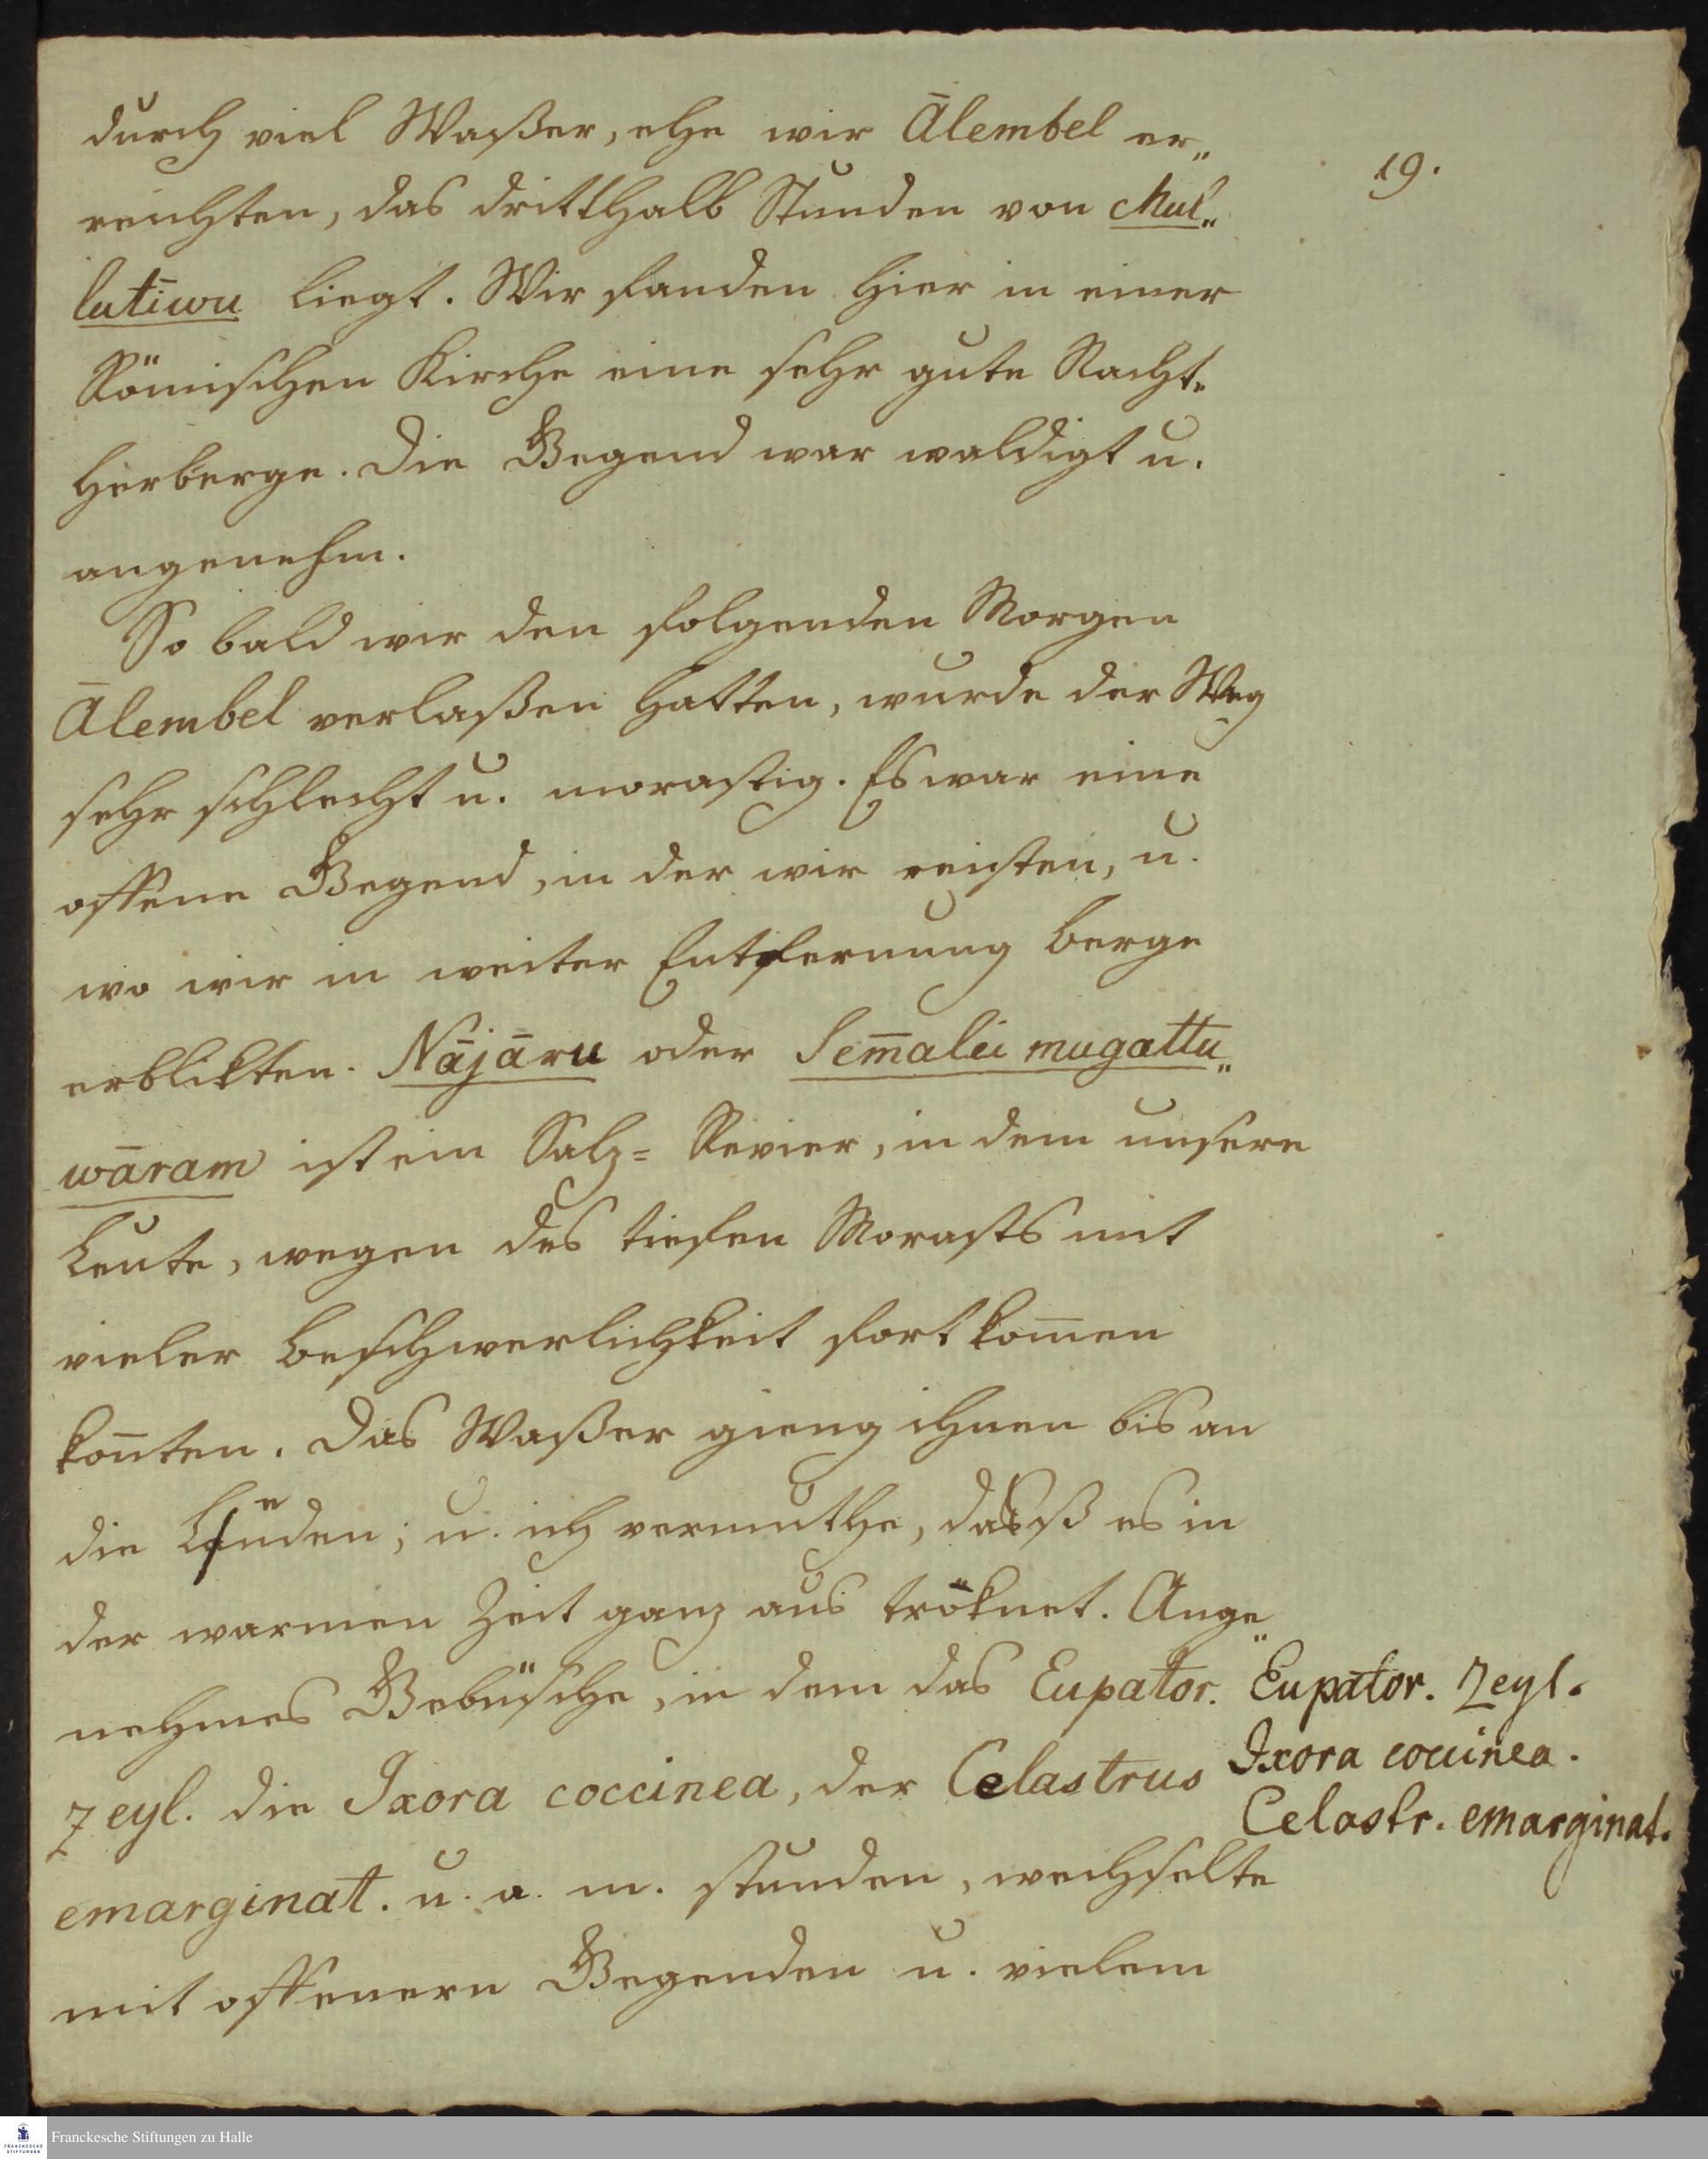 19.
durch viel Waßer, ehe wir Ālembel er„
reichten, das dritthalb Stunden von Mul„
lutīwu liegt. Wir fanden hier in einer
Römischen Kirche eine sehr gute Nacht„
herberge. Die Gegend war waldigt u.
angenehm.
So bald wir den folgenden Morgen
Ālembel verlaßen hatten, wurde der Weg
sehr schlecht u. morastig. Es war eine
offene Gegend, in der wir reisten, u.
wo wir in weiter Entfernung Berge
erblikten. Nājāru oder Sem̄alei mugattu„
wāram ist ein Salz= Revier, in dem unsere
Leute, wegen des tiefen Morasts mit
vieler Beschwerlichkeit fortkom̄en
kon̄ten. Das Waßer gieng ihnen bis an
die Lenden; u. ich vermuthe, daß es in
der warmen Zeit ganz aus tröknet. Ange„
nehmes Gebüsche, in dem das Eupator.
zeyl. die Ixora coccinea, der Celastrus
emarginat. u. a. m. stunden, wechselte
mit offenern Gegenden u. vielem
Eupator. Zeyl.
Ixora coccinea.
Celastr. emarginat.
Franckesche Stiftungen zu Halle